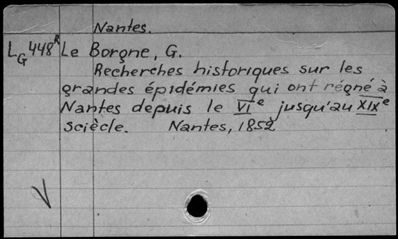 Nantes.
LG 448R Le Borgne, G.
Recherches historiques sur les
grandes épidémies qui ont régné à
Nantes depuis le VIe jusqu'au XIXe
sciècle. Nantes, 1852